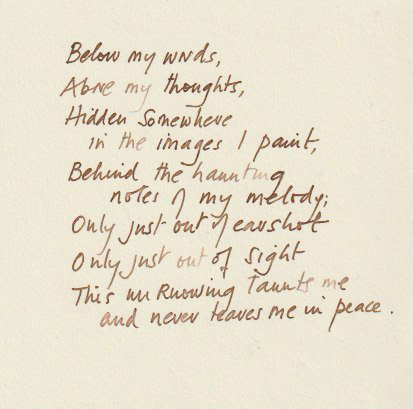 Below my words,
Above my thoughts,
Hidden Somewhere
in the images I paint,
Behind the haunting
notes of my melody;
Only just out of earshot
Only just out of sight
This unknowing Taunts me
and never leaves me in peace.